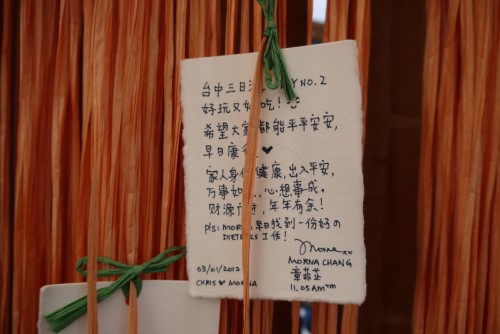 台中三日 Y NO.2
好玩又好吃！
希望大家都能平平安安，
早日康 ♥
家人身 健康，出入平安，
万事如 ，心想事成，
财源广 ，年年有余！
p/s: MORNA 早日找到一份好の
DIETETICS 工作！
Morna
03/01/2012
MORNA CHANG
CHRIS ♥ MORNA
11.05AM